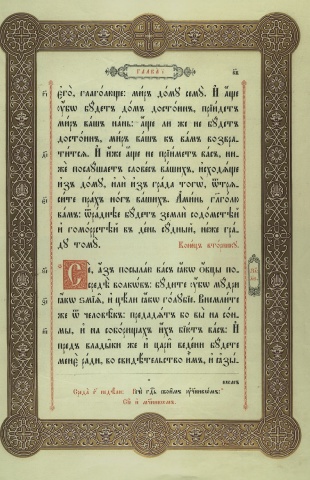 ГЛАВА І
его̀, глаго́люще: ми́ръ до́му сему̀. И҆ а҆́ще
ᲂу҆́бѡ бꙋ́детъ до́мъ досто́инъ, прїи́детъ
ми́ръ ва́шъ на́нь: а҆́ще ли же не бꙋ́детъ
досто́инъ, ми́ръ ва́шъ къ ва́мъ возвра-
ти́тсѧ. И҆ и҆́же а҆́ще не прїи́метъ ва́съ, ни-
же послꙋ́шаетъ слове́съ ва́шихъ, и҆сходѧ́ще
и҆з̾ до́мꙋ, и҆лѝ и҆з̾ гра́да тогѡ̀, ѿтрѧ-
си́те пра́хъ но́гъ ва́шихъ. А҆ми́нь гл҃голю
ва́мъ: ѿра́днѣе бꙋ́детъ землѝ содо́мстѣй
и҆ гомо́рстѣй въ де́нь сꙋ́дный, не́же гра́-
дꙋ томꙋ̀. Коне́цъ вто́рникꙋ.
Сѐ, а҆́зъ посыла́ю ва́съ ꙗ҆́кѡ ѻ҆́вцы по-
средѣ̀ волкѡ́въ: бꙋ́дите ᲂу҆́бѡ мꙋ́дри
ꙗ҆́кѡ ѕмїѧ̑, и҆ цѣ́ли ꙗ҆́кѡ го́лꙋбїе. Внемли́те
же ѿ человѣ̑къ: предадѧ́тъ бо вы̀ на со́н-
мы, и҆ на собо́рищахъ и҆́хъ бїю́тъ ва́съ: И҆
пред̾ влады́ки же и҆ цари̑ веде́ни бꙋ́дете
менє̀ ра́ди, во свидѣ́тельство и҆̀мъ, и҆ ꙗ҆зы́-
кѡмъ.
Среда̀ г҃ недѣ́ли: Речѐ гд҇ь свои̑мъ ᲂу҆ченикѡ́мъ:
Сїѐ и҆ мч҃нкѡмъ.